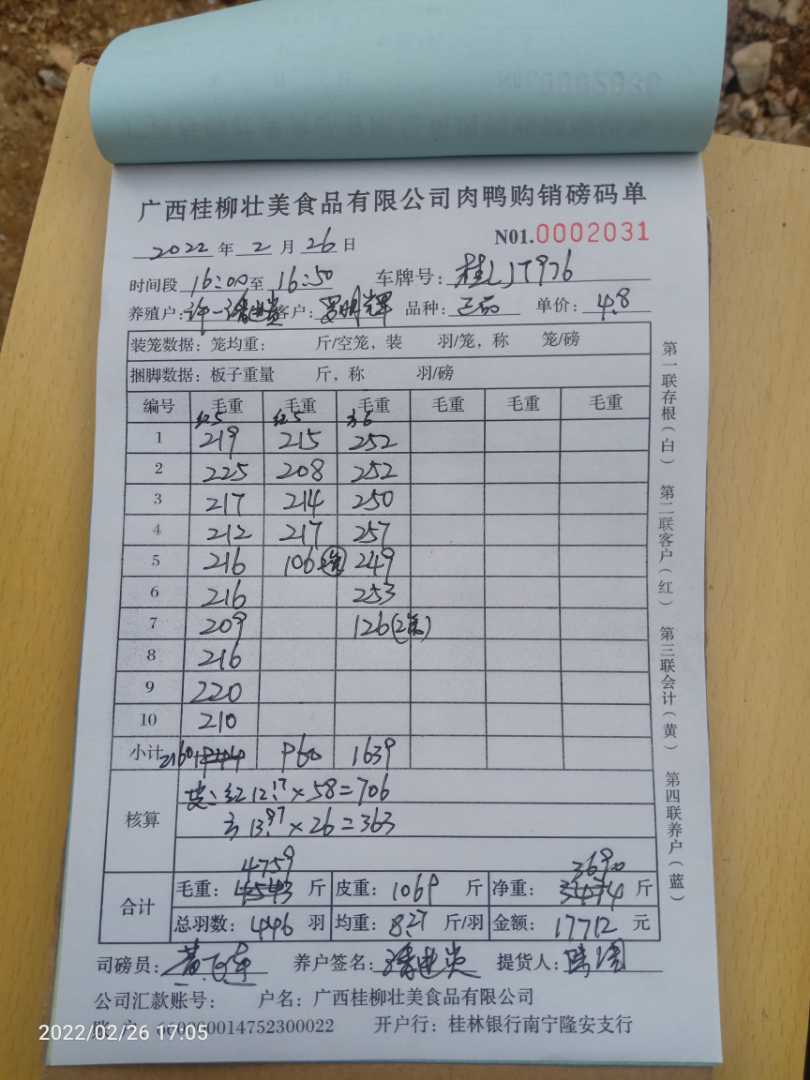 广西桂柳壮美食品有限公司肉鸭购销磅码单
2022 年 2 月 26 日 N01.0002031
时间段 16:00 至 16:50 车牌号: 桂LJT976
养殖户: 许一 客户: 罗明辉 品种: 单价: 4.8
装笼数据: 笼均重: 斤/空笼, 装 羽/笼, 称 笼/磅
捆脚数据: 板子重量 斤, 称 羽/磅
编号 毛重 毛重 毛重 毛重 毛重 毛重
红5 红5 方6
1 219 215 252
2 225 208 252
3 217 214 250
4 212 217 257
5 216 106 249
6 216 253
7 209 126(2笼)
8 216
9 220
10 210
小计 2160 960 1639
核算 红12.17×58=706
方13.97×26=363
4759 3690
合计 毛重: 斤 皮重: 1069 斤 净重: 斤
总羽数: 446 羽 均重: 8.27 斤/羽 金额: 17712 元
司磅员: 养户签名: 提货人:
公司汇款账号: 户名: 广西桂柳壮美食品有限公司
账户 00014752300022 开户行: 桂林银行南宁隆安支行
第一联存根(白) 第二联客户(红) 第三联会计(黄) 第四联养户(蓝)
2022/02/26 17:05